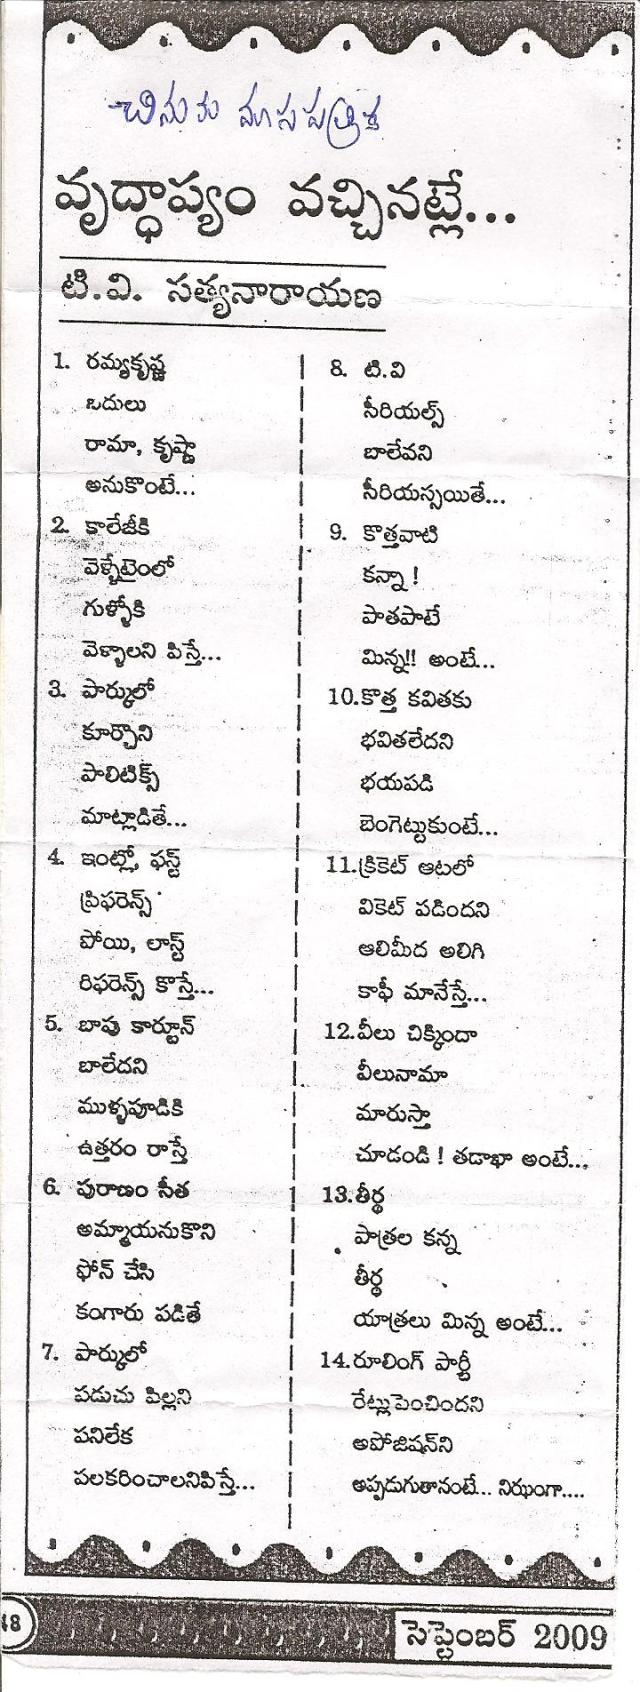 చినుకు మాసపత్రిక
వృద్ధాప్యం వచ్చినట్లే...
టి.వి. సత్యనారాయణ
1. రమ్యకృష్ణ
ఒదులు
రామా, కృష్ణా
అనుకొంటే...
2. కాలేజీకి
వెళ్ళేటైంలో
గుళ్ళోకి
వెళ్ళాలని పిస్తే...
3. పార్కులో
కూర్చొని
పాలిటిక్స్
మాట్లాడితే...
4. ఇంట్లో, ఫస్ట్
ప్రిఫరెన్స్
పోయి, లాస్ట్
రిఫరెన్స్ కొస్తే...
5. బాపు కార్టూన్
బాలేదని
ముళ్ళపూడికి
ఉత్తరం రాస్తే
6. పురాణం సీత
అమ్మాయనుకొని
ఫోన్ చేసి
కంగారు పడితే
7. పార్కులో
పడుచు పిల్లని
పనిలేక
పలకరించాలనిపిస్తే...
8. టి.వి
సీరియల్స్
బాలేవని
సీరియస్సయితే...
9. కొత్తవాటి
కన్నా !
పాతపాటే
మిన్న!! అంటే...
10.కొత్త కవితకు
భవితలేదని
భయపడి
బెంగెట్టుకుంటే...
11.క్రికెట్ ఆటలో
వికెట్ పడిందని
ఆలిమీద అలిగి
కాఫీ మానేస్తే...
12.వీలు చిక్కిందా
వీలునామా
మారుస్తా
చూడండి ! తడాఖా అంటే...
13.తీర్థ
పాత్రల కన్న
తీర్థ
యాత్రలు మిన్న అంటే...
14.రూలింగ్ పార్టీ
రేట్లుపెంచిందని
అపోజిషన్‌ని
అప్పడుగుతానంటే... నిఝంగా....
48
సెప్టెంబర్ 2009